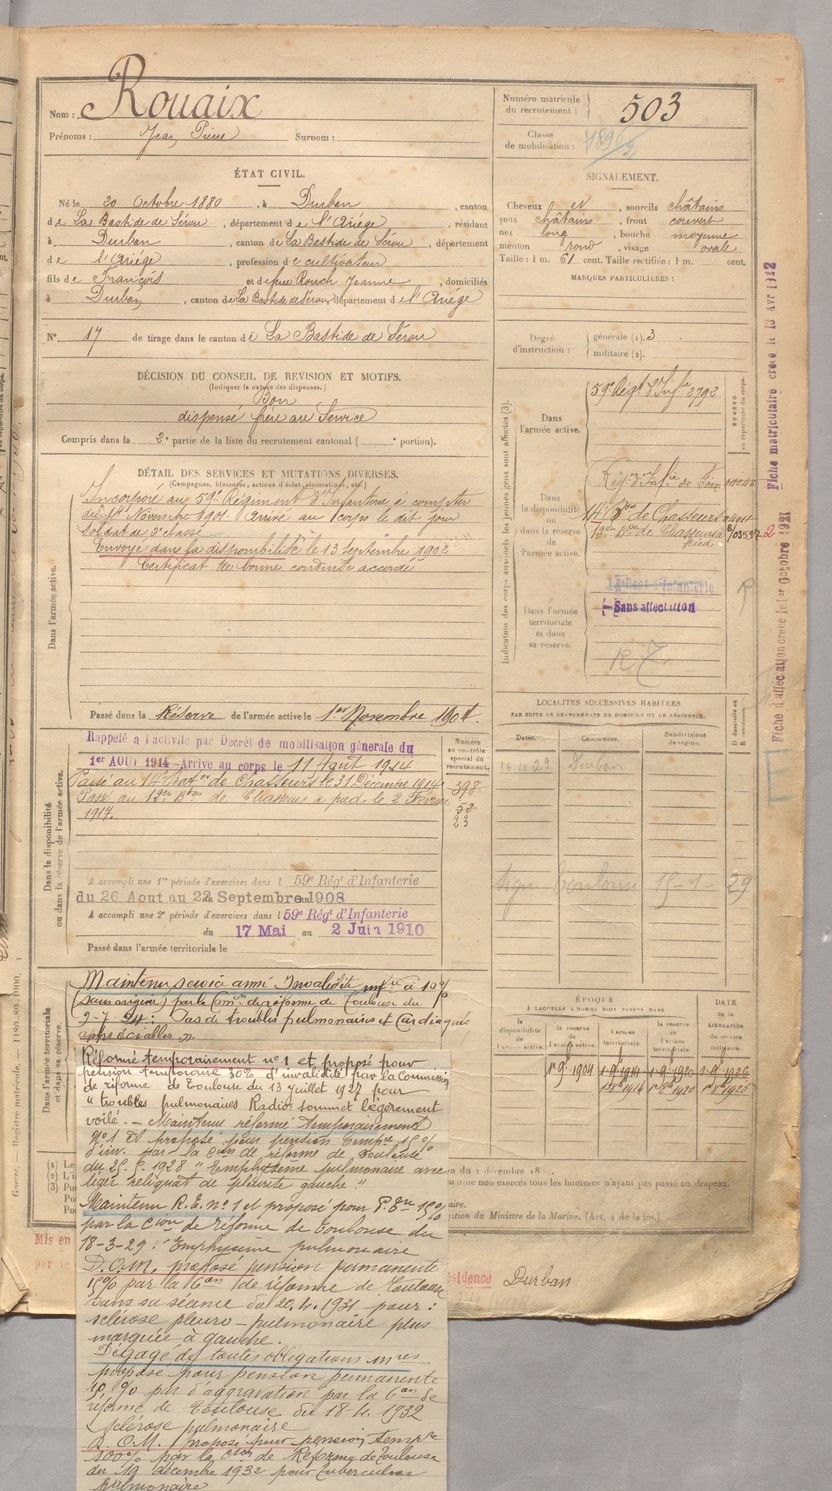 Nom : Rouaix
Prénoms : Jean Pierre Surnom :
Numéro matricule du recrutement : 503
Classe de mobilisation :
ÉTAT CIVIL.
Né le 20 Octobre 1880, à Durban, canton
de La Bastide de Sérou, département de l'Ariège, résidant
à Durban, canton de La Bastide de Sérou, département
de l'Ariège, profession de cultivateur
fils de François et de feue Rouch Jeanne, domiciliés
à Durban, canton de La Bastide de Sérou, département de l'Ariège
N° 17 de tirage dans le canton de La Bastide de Sérou
SIGNALEMENT.
Cheveux et, sourcils châtains
yeux châtains, front couvert
nez long, bouche moyenne
menton rond, visage ovale
Taille : 1 m. 61 cent. Taille rectifiée : 1 m. cent.
MARQUES PARTICULIÈRES :
Degré d'instruction : générale (1). 3
militaire (2).
DÉCISION DU CONSEIL DE REVISION ET MOTIFS.
(Indiquer la nature des dispenses.)
Bon
dispensé frère au Service
Compris dans la 2e partie de la liste du recrutement cantonal ( e portion).
DÉTAIL DES SERVICES ET MUTATIONS DIVERSES.
(Campagnes, blessures, actions d'éclat, décorations, etc.)
Dans l'armée active.
Incorporé au 59e Régiment d'Infanterie à compter
du 14 Novembre 1901. Arrivé au corps le dit jour
soldat de 2e classe
Envoyé dans la disponibilité le 13 Septembre 1902
Certificat de bonne conduite accordé
Passé dans la Réserve de l'armée active le 1er Novembre 1904.
Dans la disponibilité ou dans la réserve de l'armée active.
Rappelé à l'activité par Decret de mobilisation générale du
1er AOUT 1914 - Arrivé au corps le 11 Août 1914
Passé au 14e Bat.on de Chasseurs le 31 Décembre 1914
Passé au 12e Bon de Chasseurs à pied le 2 Février
1917.
Numéro au contrôle spécial du recrutement.
398
52
23
A accompli une 1re période d'exercices dans l 59e Régt d'Infanterie
du 26 Aout au 22 Septembre 1908
A accompli une 2e période d'exercices dans l 59e Régt d'Infanterie
du 17 Mai au 2 Juin 1910
Passé dans l'armée territoriale le
Indication des corps auxquels les jeunes gens sont affectés (3).
Dans l'armée active.
59e Régt d'Infie 2792
Dans la disponibilité ou dans la réserve de l'armée active.
Régt d'Infie de Foix
14e Bon de Chasseurs
12e Bon de Chasseurs à Pied
Dans l'armée territoriale et dans sa réserve.
Sans affectation
Fiche matricutaire creée le 13 Avr 1932
Fiche d'affectation creée le 1er Octobre 1921
LOCALITÉS SUCCESSIVES HABITÉES
PAR SUITE DE CHANGEMENTS DE DOMICILE OU DE RÉSIDENCE.
Dates. Communes. Subdivisions de région.
Durban
Toulouse 15-1-29
ÉPOQUE
À LAQUELLE L'HOMME DOIT PASSER DANS
la disponibilité de l'armée active. la réserve de l'armée active. l'armée territoriale. la réserve de l'armée territoriale.
DATE de la LIBÉRATION du service militaire.
Dans l'armée territoriale et dans sa réserve.
Maintenu service armé Invalidité infre à 10%
(sans origine) par la Comon de réforme de Toulouse du
2-7-24 : Pas de troubles pulmonaires et cardiaques
appréciables ".
Réformé temporairement n°1 et proposé pour
pension temporaire 30% d'invalidité par la Commission
de réforme de Toulouse du 13 juillet 1927 pour
" troubles pulmonaires Radio: sommet légèrement
voilé. - Maintenu réformé temporairement
N°1 et proposé pour pension tempre 15%
d'inv. par la Con de réforme de Toulouse
1928 " Emphysème pulmonaire avec
léger reliquat de pleurite gauche "
Maintenu R.T. n°1 et proposé pour 15%
par la Cion de réforme de Toulouse du
18-3-29 : "Emphysème pulmonaire
D.O.M. proposé pension permanente
15% par la Con de réforme de Toulouse
dans sa séance du 20.4.1931 pour :
sclérose pleuro-pulmonaire plus
marquée à gauche.
Dégagé de toutes obligations mres
proposé pour pension permanente
pas d'aggravation par la Con de
réforme de Toulouse du 18.4.1932
sclérose pulmonaire
D.O.M. proposé pour pension tempre
100% par la Con de Réforme de Toulouse
du 19 décembre 1932 pour tuberculose
pulmonaire
Registre matricule. — 1180-80. 1900.
Mis en
par le
résidence Durban
ition du Ministre de la Marine. (Art. 4 de la loi.)